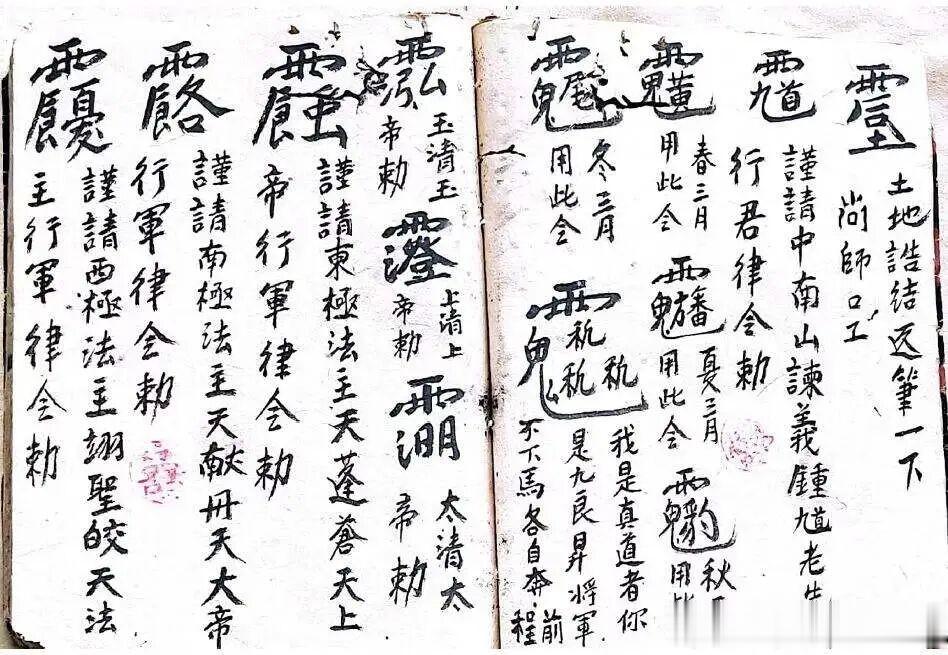 土地誥结返筆一下
尚師口工
謹請中南山諫義鍾馗老
行君律令勅
春三月
用此令
夏三月
用此令
秋
用此
冬三月
用此令
我是真道者你
是九良昇將軍
不下馬各自奔前程
玉清玉
帝勅
上清上
帝勅
太清太
帝勅
謹請東極法主天蓬蒼天上
帝行軍律令勅
謹請南極法主天献冊天大帝
行軍律令勅
謹請西極法主翊聖皎天法
主行軍律令勅